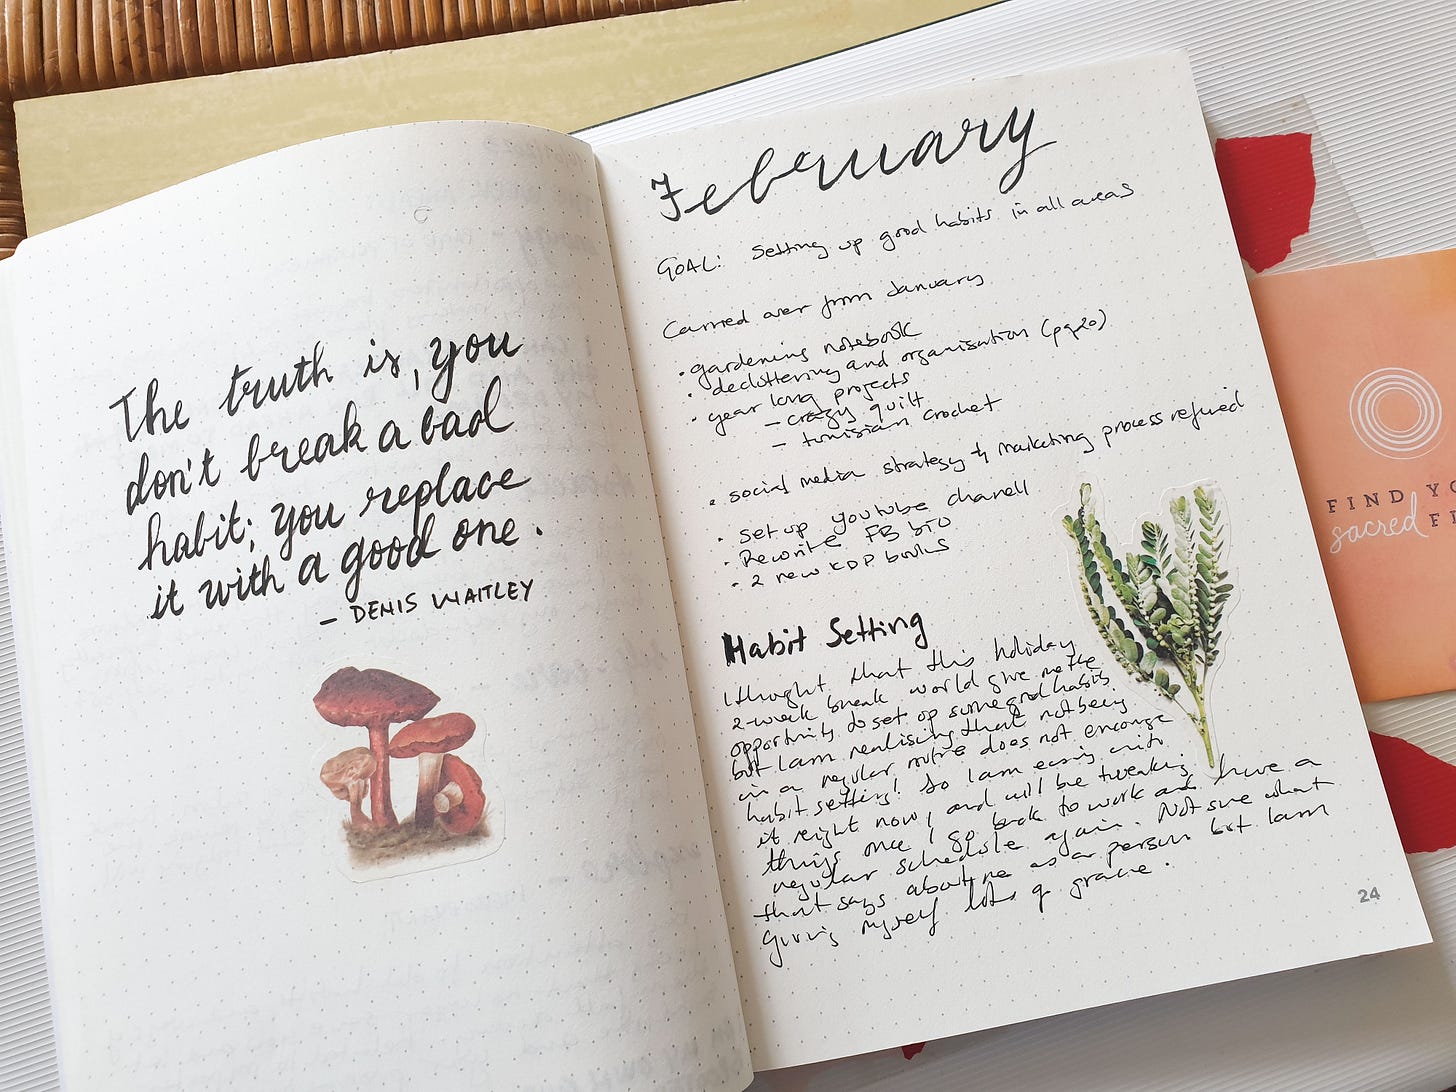 The truth is, you
don't break a bad
habit; you replace
it with a good one.
– DENIS WAITLEY
February
GOAL: Setting up good habits in all areas
Carried over from January
• gardening notebook
• decluttering and organisation (pg20)
• year long projects
– crazy quilt
– tunisian crochet
• social media strategy & marketing process refined
• set up youtube chanell
• Rewrite FB bio
• 2 new KDP books
Habit Setting
I thought that this holiday
2-week break would give me the
opportunity to set up some good habits
but I am realising that not being
in a regular routine does not encourage
habit setting! So I am easing into
it right now, and will be tweaking
things once I go back to work and have a
regular schedule again. Not sure what
that says about me as a person but I am
giving myself lots of grace.
24
FIND YO
sacred FI